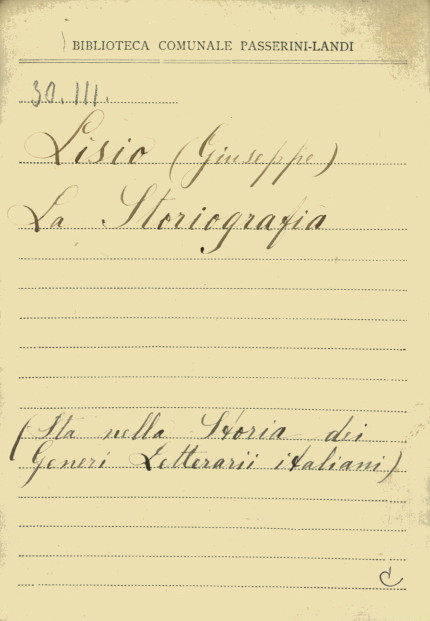 BIBLIOTECA COMUNALE PASSERINI-LANDI
30.III.
Lisio (Giuseppe)
La Storiografia
(Sta nella Storia dei
Generi Letterarii italiani)